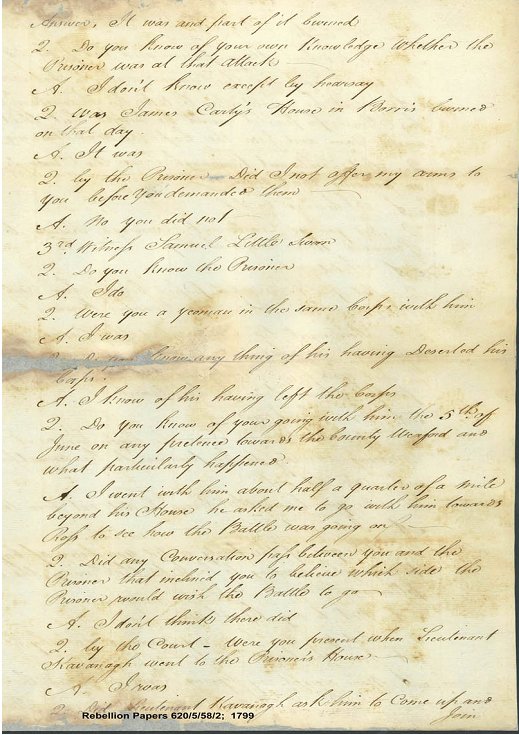 Answer, It was and part of it burned
Q. Do you know of your own knowledge whether the
Prisoner was at that attack
A. I don't know except by hearsay
Q. was James Carty's House in Borris burned
on that day.
A. It was
Q. by the Prisoner – Did I not offer my arms to
you before you demanded them
A. No you did not
3rd. Witness Samuel Little Sworn
Q. Do you know the Prisoner
A. I do
Q. Were you a yeoman in the same Corps with him
A. I was
Q. Do you know any thing of his having Deserted his
Corps.
A. I know of his having left the Corps
Q. Do you know of your going with him the 5th. of
June on any pretence towards the County Wexford and
what particularly happened
A. I went with him about half a quarter of a mile
beyond his House he asked me to go with him towards
Ross to see how the Battle was going on
Q. Did any Conversation pass between you and the
Prisoner that inclined you to believe which side the
Prisoner would wish the Battle to go
A. I don't think there did
Q. by the Court – Were you present when Lieutenant
Kavanagh went to the Prisoner's House
A. I was
Q. Did Lieutenant Kavanagh ask him to Come up and
Join
Rebellion Papers 620/5/58/2; 1799